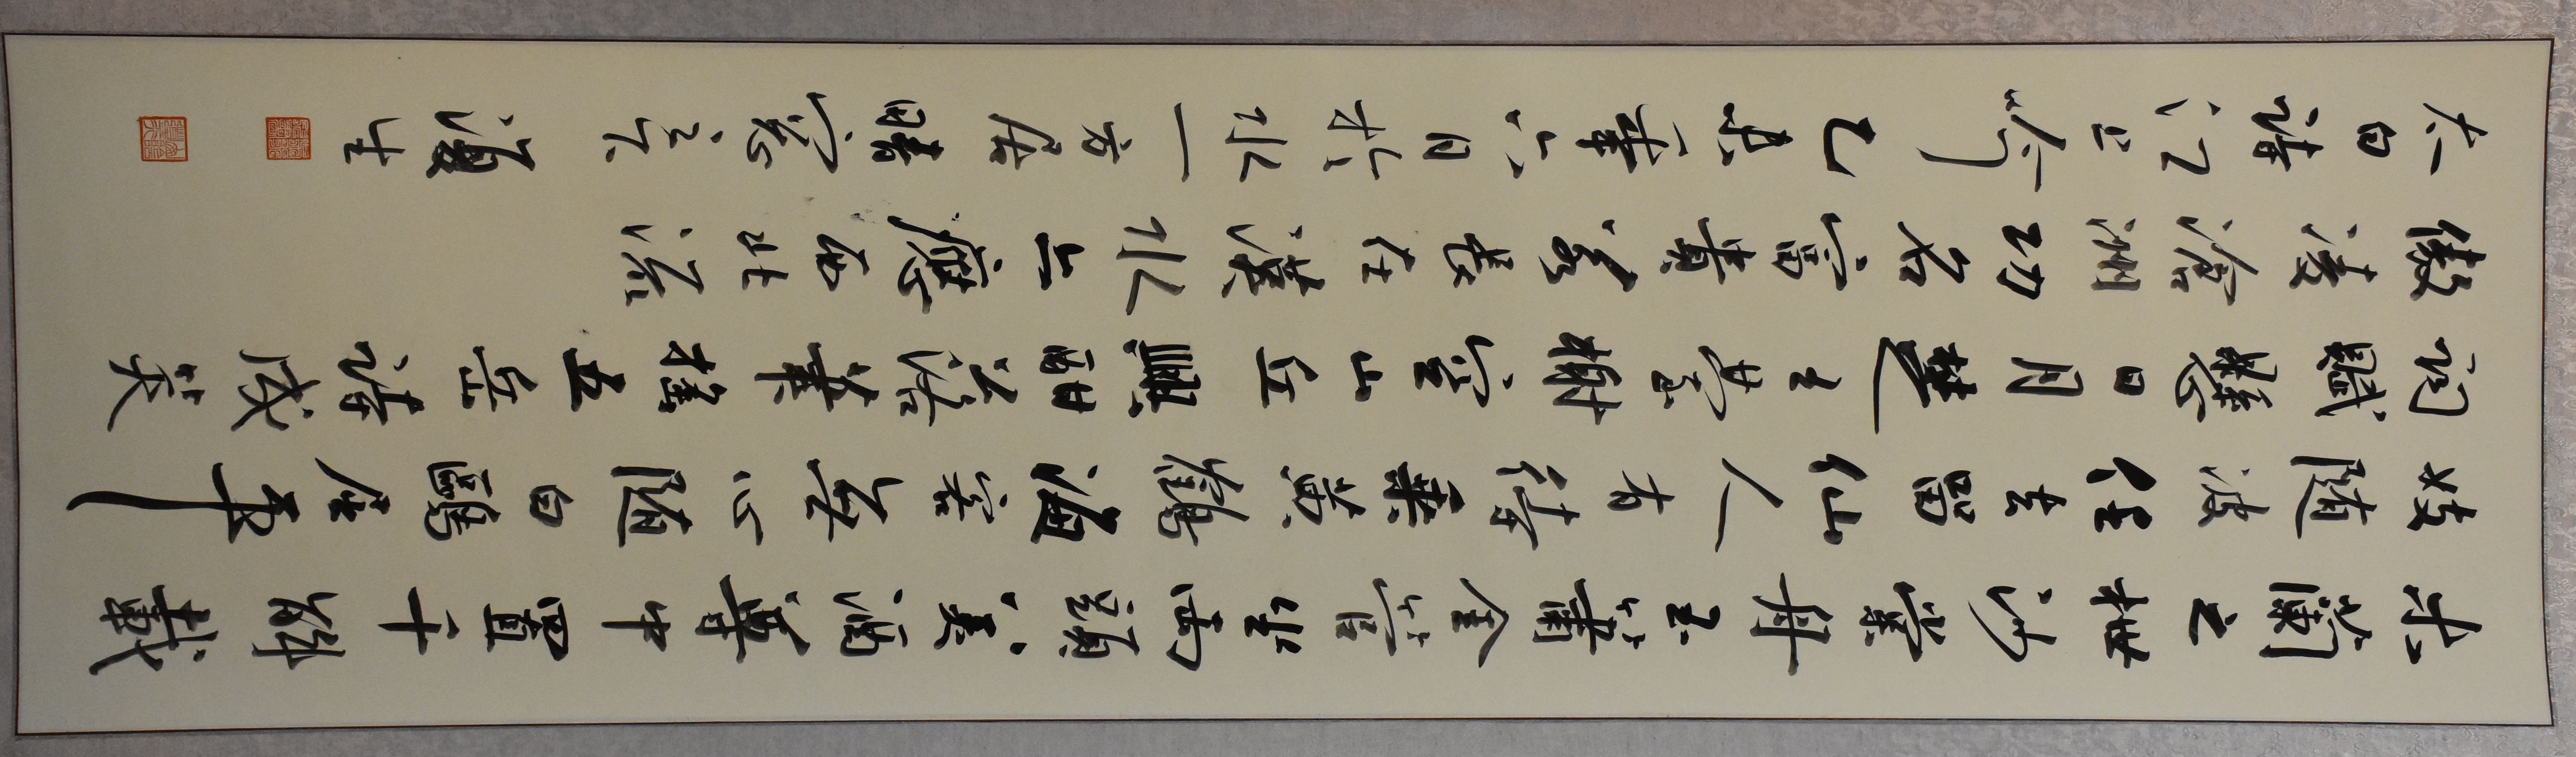 木蘭之枻沙棠舟玉簫金管坐兩頭美酒尊中置千斛載
妓隨波任去留仙人有待乘黃鶴海客無心隨白鷗屈平
詞賦懸日月楚王臺榭空山丘興酣落筆搖五岳詩成笑
傲凌滄洲功名富貴若長在漢水亦應西北流
太白詩江上吟乙年六月於水一方居晴窓生